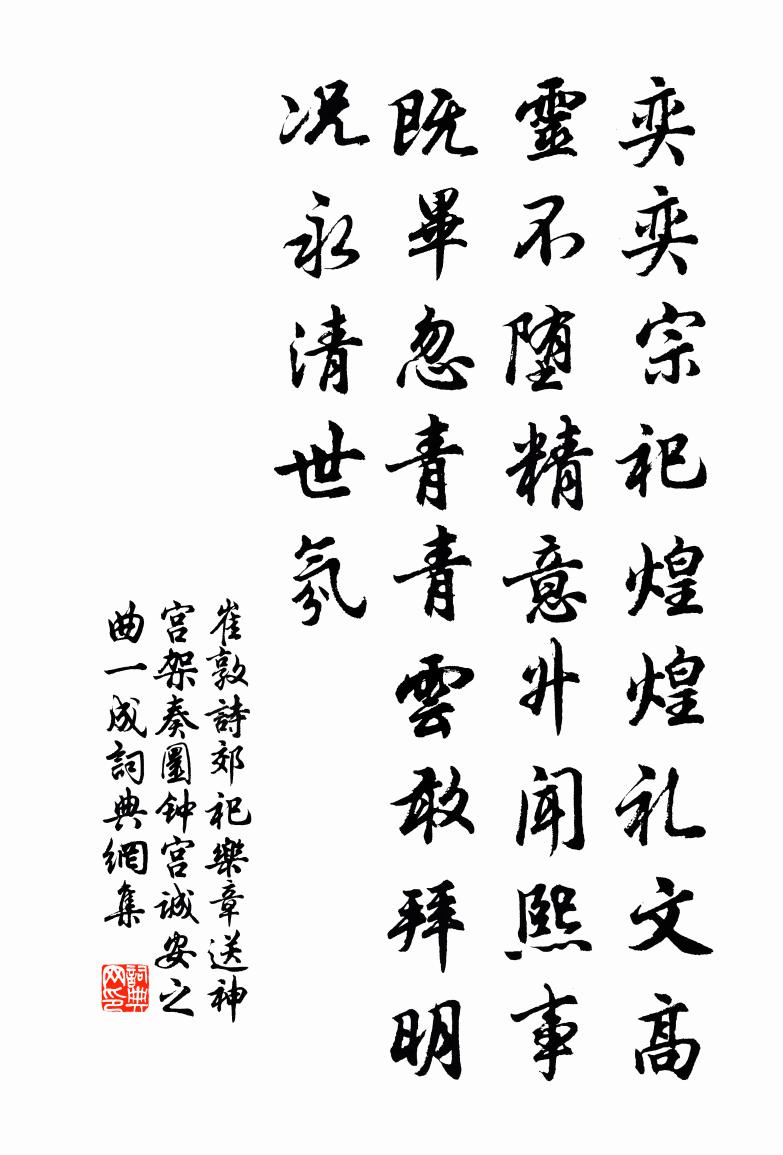 奕奕宗祀煌煌礼文高
靈不堕精意升闻熙事
既畢忽青青雲敢拜明
况永清世氛
崔敦詩郊祀樂章送神
宫架奏圜钟宫诚安之
曲一成詞典網集
詞典网印